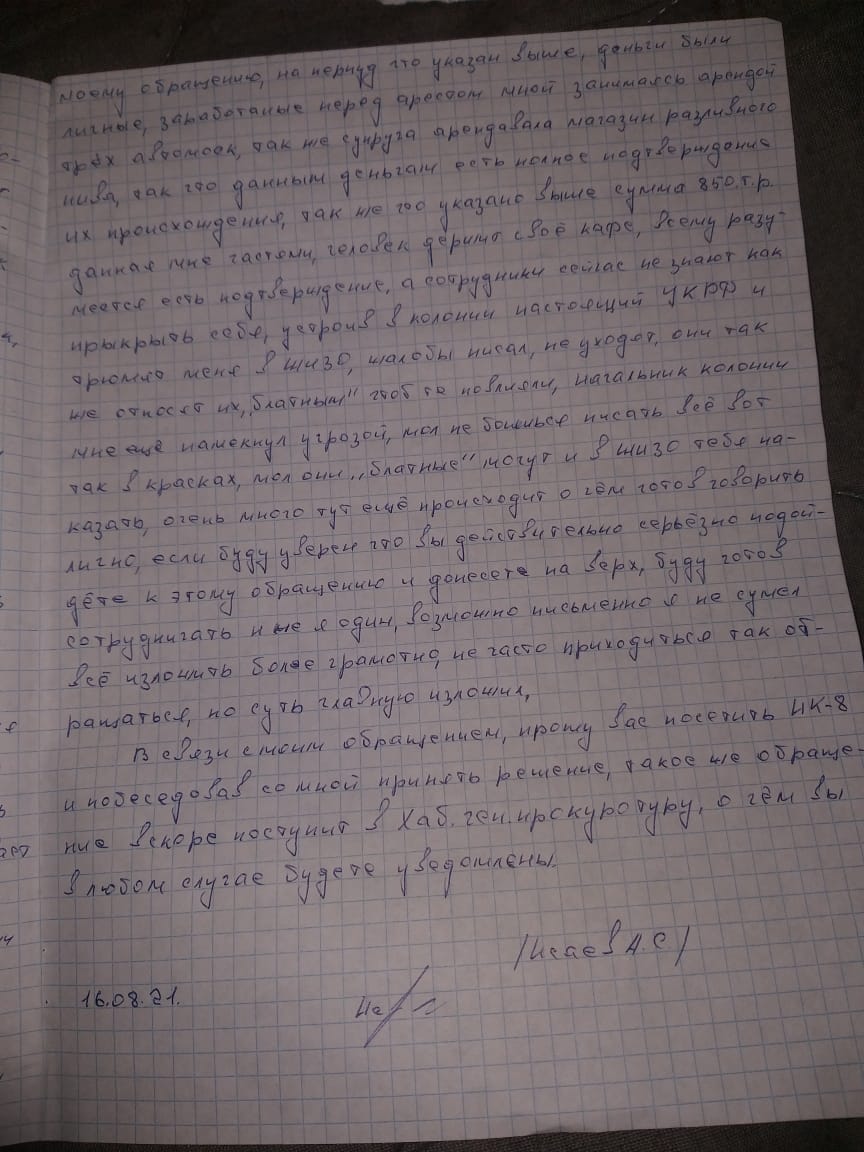 моему обращению, на период что указан выше, деньги были
личные, заработаные перед арестом мной занимаясь арендой
трёх автомоек, так же супруга арендавала магазин разливного
пива, так что данным деньгам есть полное подтверждение
их происхождения, так же что указано выше сумма 850.т.р.
данная мне частями, человек держит своё кафе, всему разу-
меется есть подтверждение, а сотрудники сейчас не знают как
прыкрыть себя, устроив в колонии настоящий УК РФ и
трюмят меня в шизо, жалобы писал, не уходят, они так
же относят их „блатным" чтоб те повлияли, начальник колонии
мне ещё намекнул угрозой, мол не боишься писать всё вот
так в красках, мол они „блатные" могут и в шизо тебя на-
казать, очень много тут ещё происходит о чём готов говорить
лично, если буду уверен что вы действительно серьёзно подой-
дёте к этому обращению и донесете на верх, буду готов
сотрудничать и не я один, возможно письменно я не сумел
всё изложить более грамотно, не часто приходиться так об-
ращаться, но суть главную изложил,
В связи с моим обращением, прошу вас посетить ИК-8
и побеседовав со мной принять решение, такое же обраще-
ние вскоре поступит в Хаб. ген. прокуротуру, о чём вы
в любом случае будете уведомлены.
/Исаев А.С/
16.08.21.